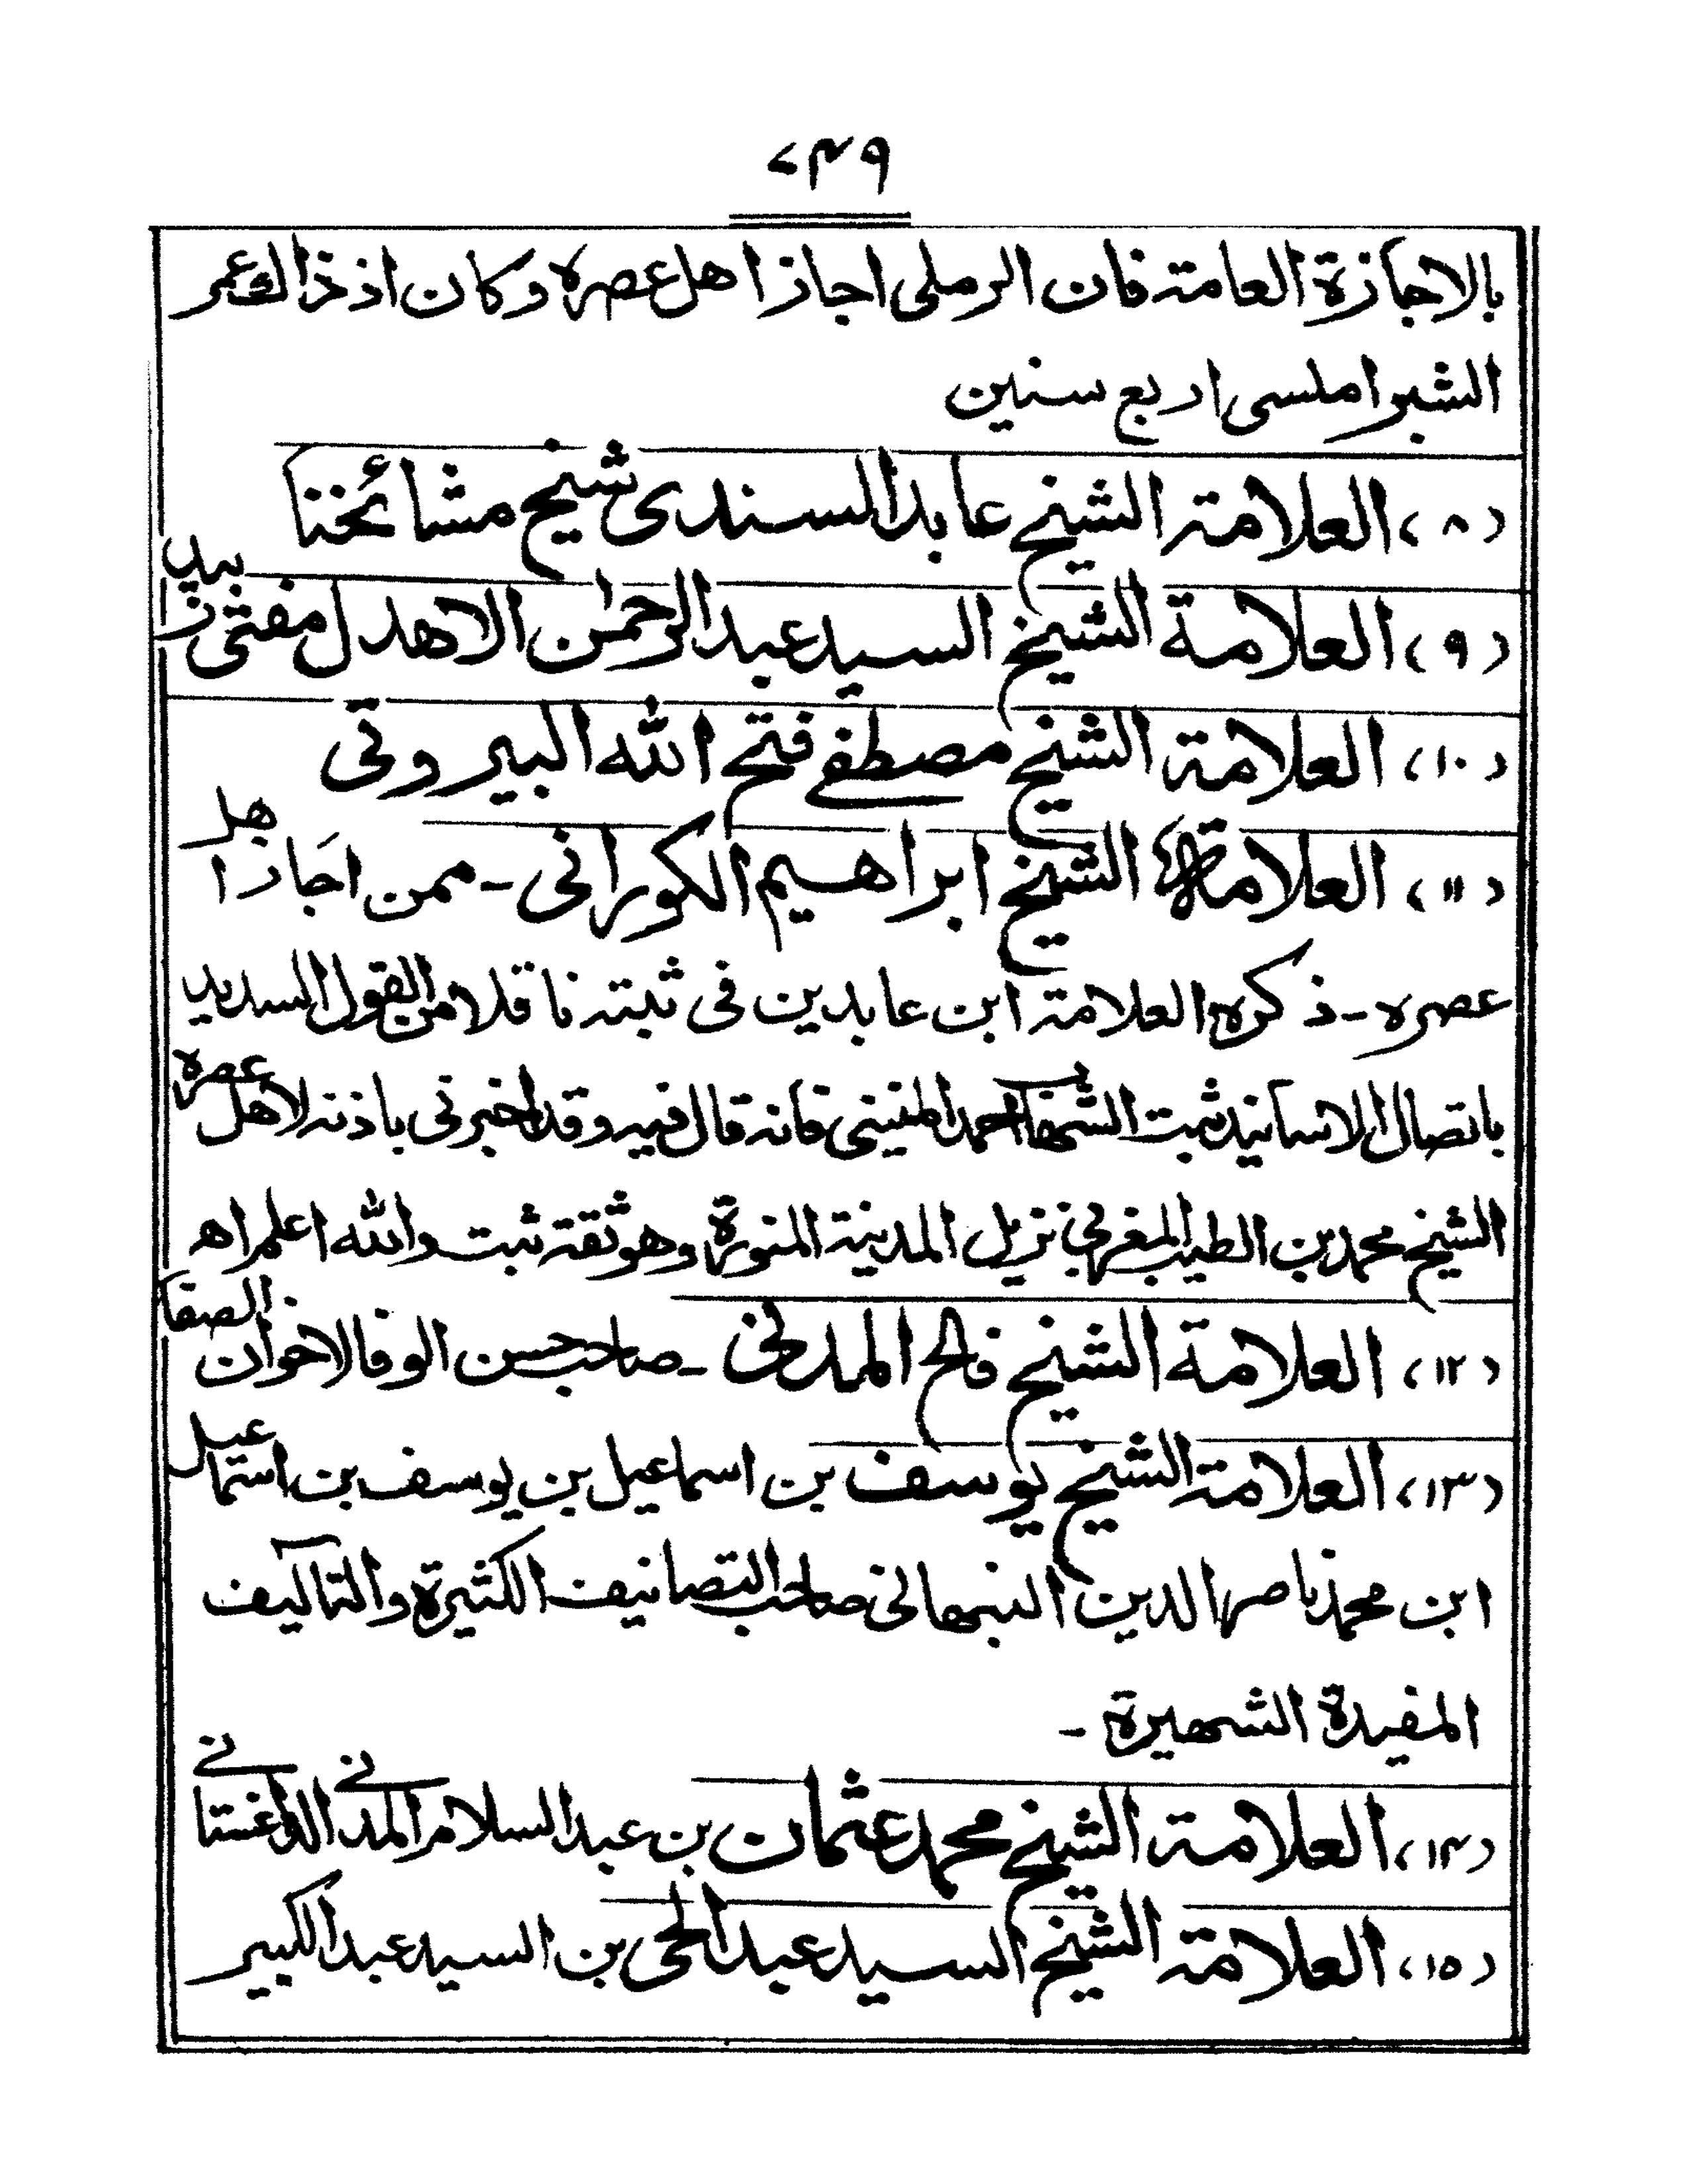 ٤٣٩
بالاجازة العامة فان الرملى اجاز اهل عصره وكان اذ ذاك عمر
الشبراملسى اربع سنين
(٨) العلامة الشيخ عابد السندى شيخ مشائخنا
(٩) العلامة الشيخ السيد عبد الرحمٰن الاهدل مفتى زبيد
(١٠) العلامة الشيخ مصطفے فتح الله البيروتى
(١١) العلامة الشيخ ابراهيم الكورانى - ممن اجاز اهل
عصره - ذكره العلامة ابن عابدين فى ثبته ناقلا من القول السديد
باتصال الاسانيد ثبت الشهاب احمد المنينى فانه قال فيه وقد اخبرنى باذنه لاهل عصره
الشيخ محمد بن الطيب المغربي نزيل المدينة المنورة وهو ثقة ثبت والله اعلم اه
(١٢) العلامة الشيخ فالح المدنى - صاحب حسن الوفا لاخوان الصفا
(١٣) العلامة الشيخ يوسف بن اسماعيل بن يوسف بن اسماعيل
ابن محمد ناصر الدين النبهانى صاحب التصانيف الكثيرة والتآليف
المفيدة الشهيرة -
(١٤) العلامة الشيخ محمد عثمان بن عبد السلام المدنے الداغستانے
(١٥) العلامة الشيخ السيد عبد الحى بن السيد عبد الكبير